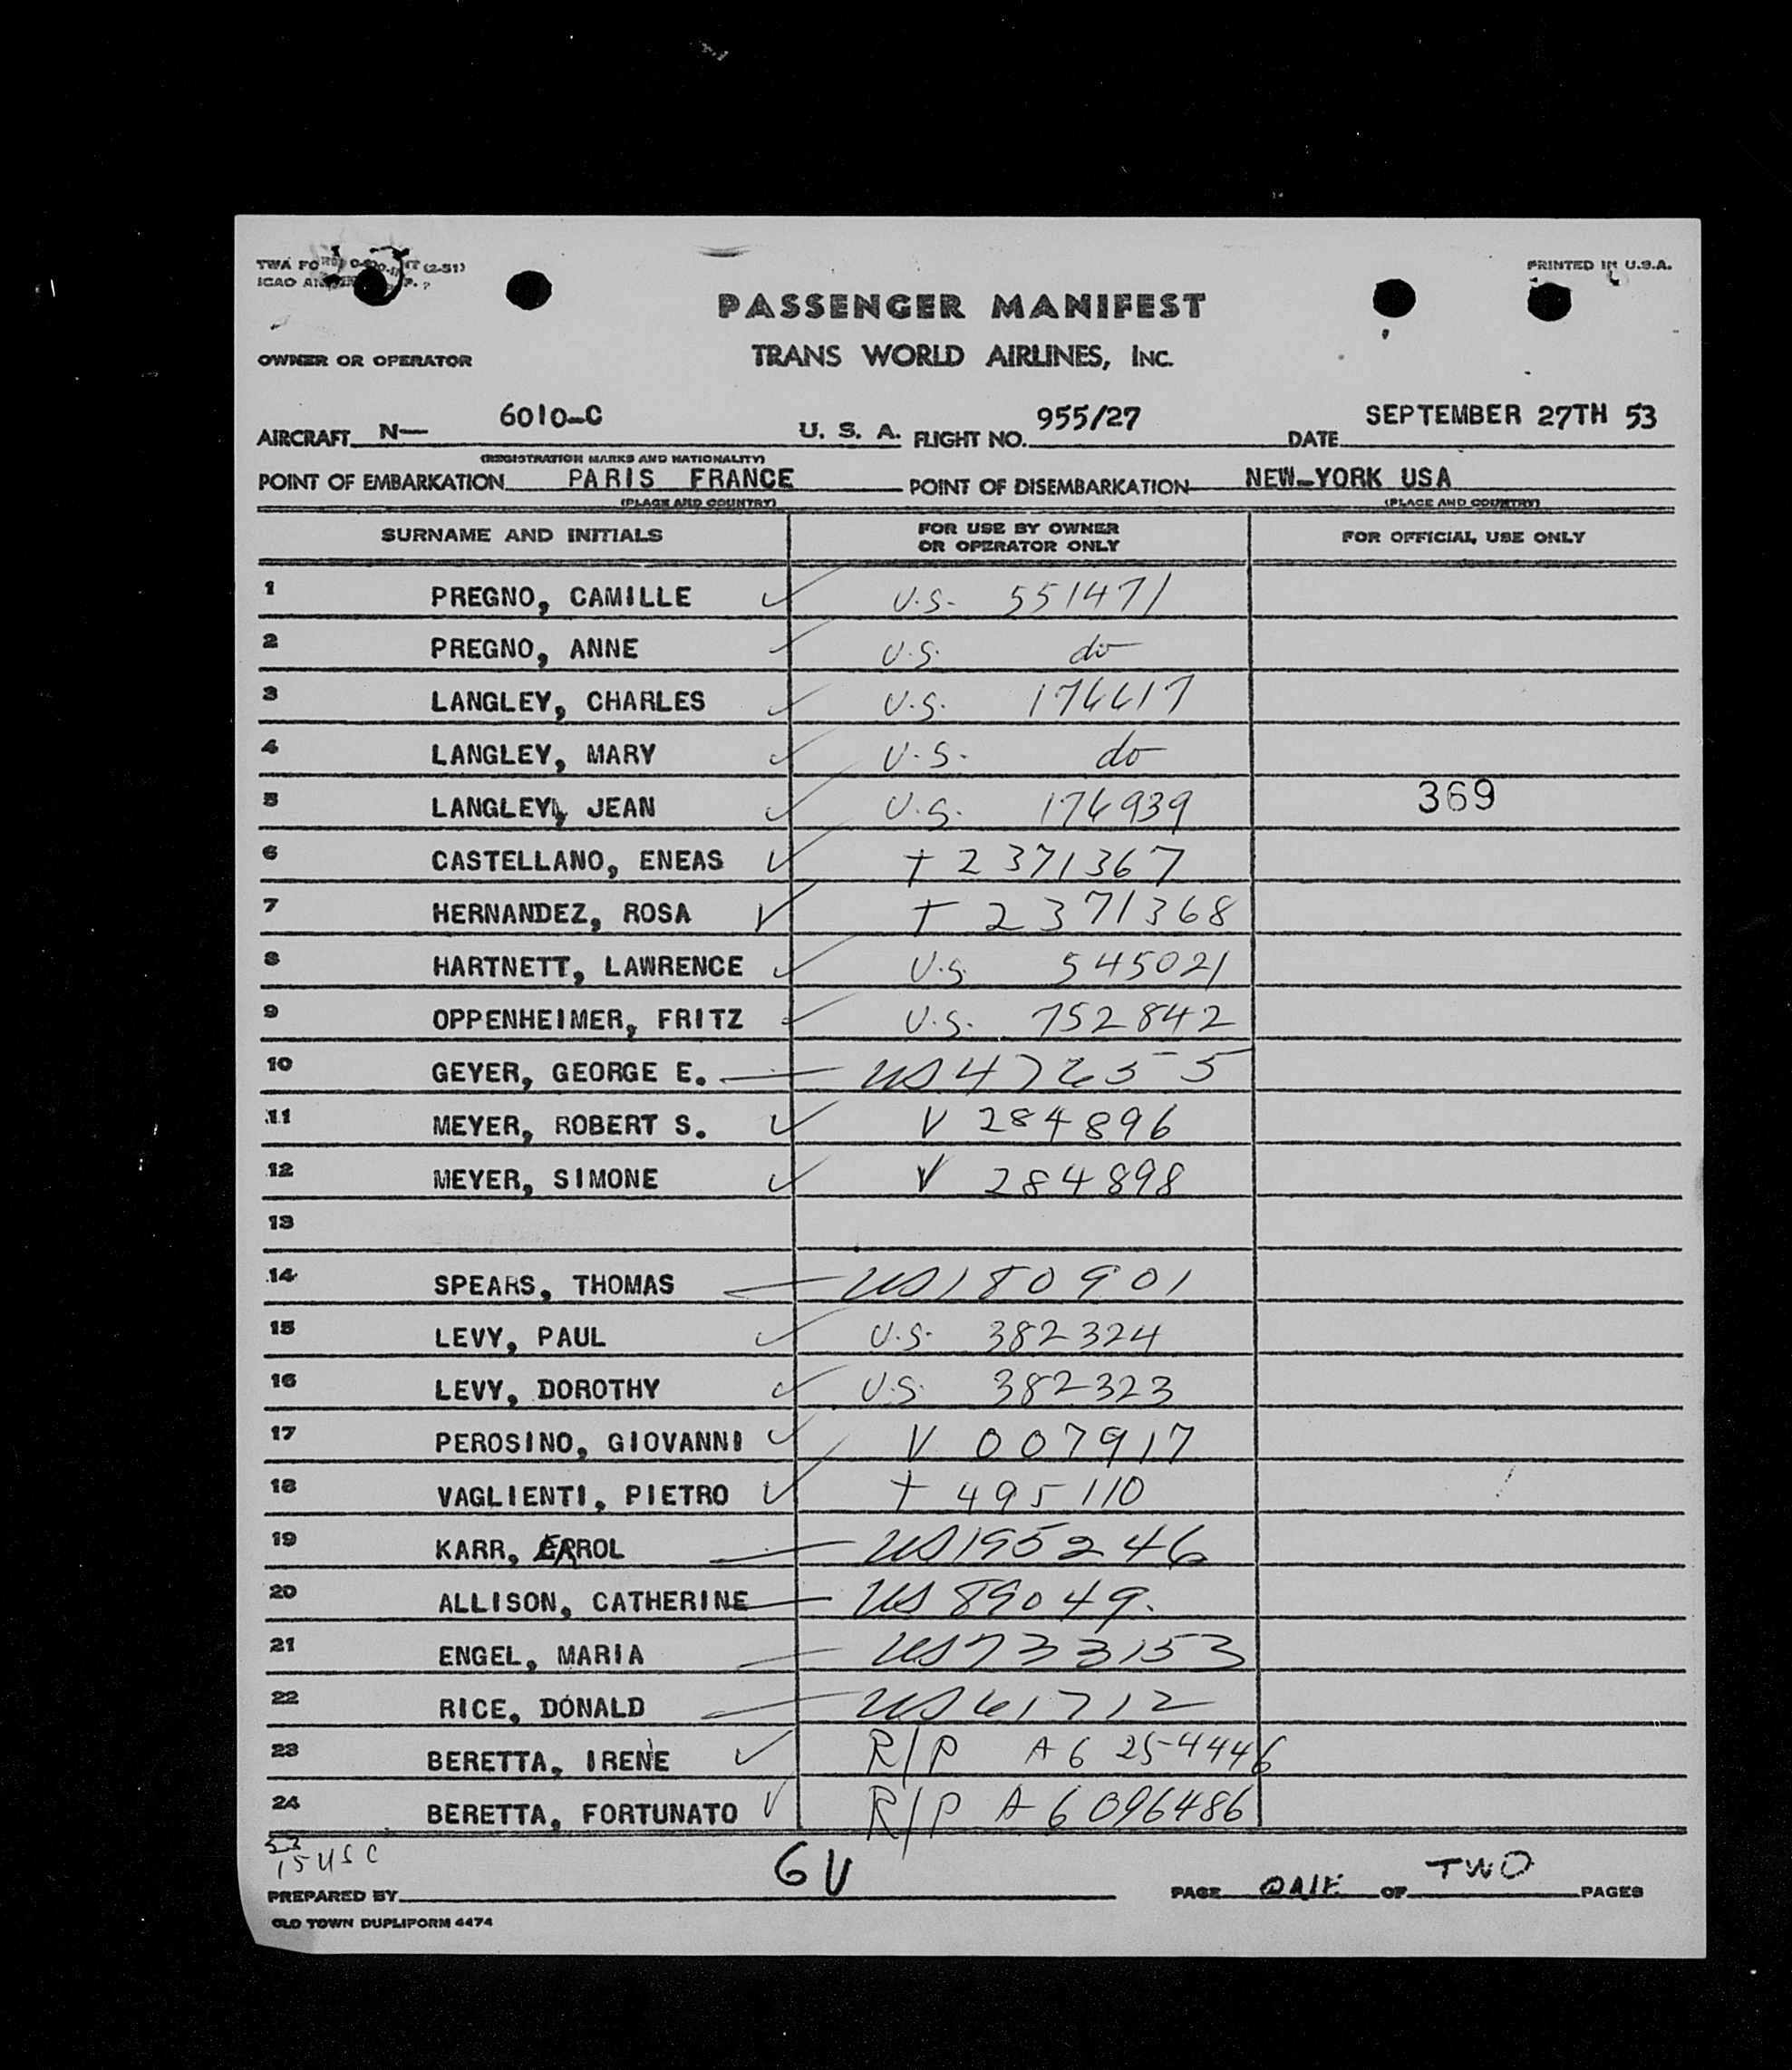 TWA FORM (2-51) PRINTED IN U.S.A.
ICAO
PASSENGER MANIFEST
OWNER OR OPERATOR TRANS WORLD AIRLINES, INC.
AIRCRAFT N— 6010-C U. S. A. FLIGHT NO. 955/27 DATE SEPTEMBER 27TH 53
(REGISTRATION MARKS AND NATIONALITY)
POINT OF EMBARKATION PARIS FRANCE POINT OF DISEMBARKATION NEW-YORK USA
(PLACE AND COUNTRY) (PLACE AND COUNTRY)
SURNAME AND INITIALS FOR USE BY OWNER OR OPERATOR ONLY FOR OFFICIAL USE ONLY
1 PREGNO, CAMILLE ✓ U.S. 551471
2 PREGNO, ANNE ✓ U.S. do
3 LANGLEY, CHARLES ✓ U.S. 176617
4 LANGLEY, MARY ✓ U.S. do
5 LANGLEY, JEAN ✓ U.S. 176939 369
6 CASTELLANO, ENEAS ✓ T 2371367
7 HERNANDEZ, ROSA ✓ T 2371368
8 HARTNETT, LAWRENCE ✓ U.S. 545021
9 OPPENHEIMER, FRITZ ✓ U.S. 752842
10 GEYER, GEORGE E. — US 472655
11 MEYER, ROBERT S. ✓ V 284896
12 MEYER, SIMONE ✓ V 284898
13
14 SPEARS, THOMAS — US 180901
15 LEVY, PAUL ✓ U.S. 382324
16 LEVY, DOROTHY ✓ U.S. 382323
17 PEROSINO, GIOVANNI ✓ V 007917
18 VAGLIENTI, PIETRO ✓ T 495110
19 KARR, ERROL — US 195246
20 ALLISON, CATHERINE — US 89049.
21 ENGEL, MARIA — US 733153
22 RICE, DONALD — US 61712
23 BERETTA, IRENE ✓ R/P A6 254446
24 BERETTA, FORTUNATO ✓ R/P A6 096486
23
15 USC 6V
PREPARED BY PAGE ONE OF TWO PAGES
OLD TOWN DUPLIFORM 4474